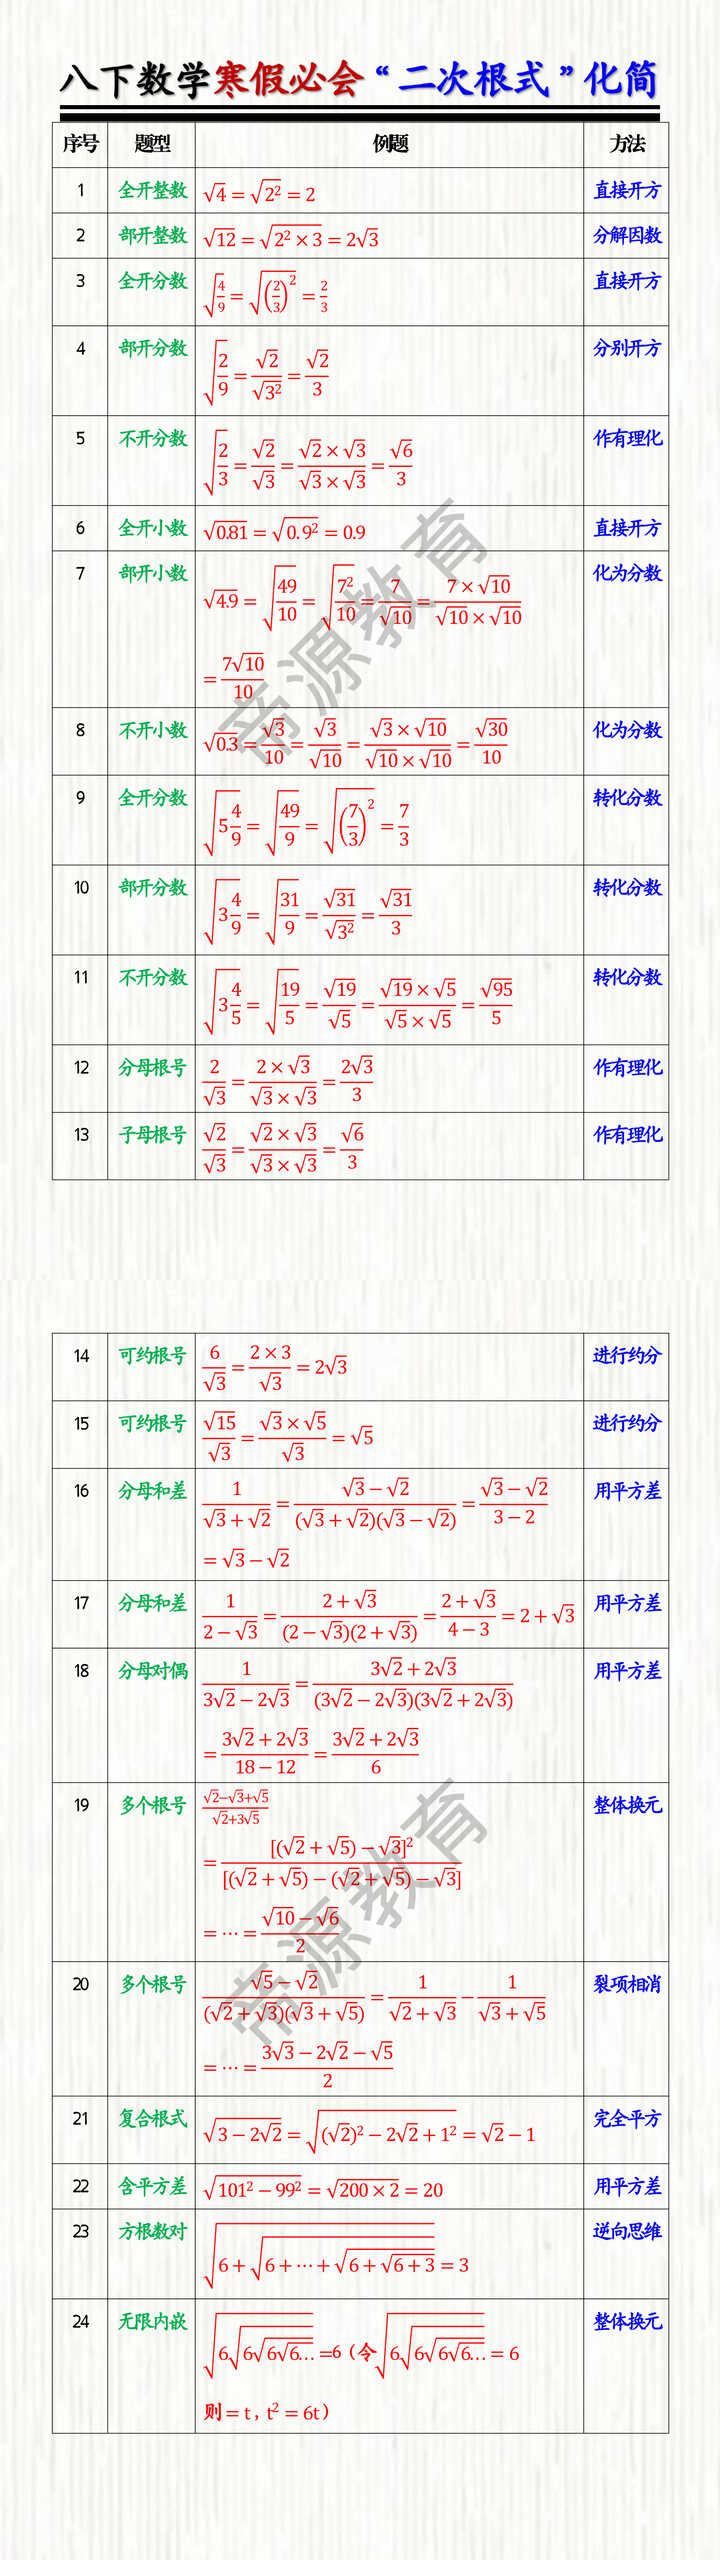 八下数学寒假必会“二次根式”化简
序号 题型 例题 方法
1 全开整数 √4 = √(2²) = 2 直接开方
2 部开整数 √12 = √(2² × 3) = 2√3 分解因数
3 全开分数 √(4/9) = √((2/3)²) = 2/3 直接开方
4 部开分数 √(2/9) = √2/√(3²) = √2/3 分别开方
5 不开分数 √(2/3) = √2/√3 = (√2 × √3)/(√3 × √3) = √6/3 作有理化
6 全开小数 √0.81 = √(0.9²) = 0.9 直接开方
7 部开小数 √4.9 = √(49/10) = √(7²/10) = 7/√10 = (7 × √10)/(√10 × √10) 化为分数
= 7√10/10
8 不开小数 √0.3 = √3/10 = √3/√10 = (√3 × √10)/(√10 × √10) = √30/10 化为分数
9 全开分数 √(5 4/9) = √(49/9) = √((7/3)²) = 7/3 转化分数
10 部开分数 √(3 4/9) = √(31/9) = √31/√(3²) = √31/3 转化分数
11 不开分数 √(3 4/5) = √(19/5) = √19/√5 = (√19 × √5)/(√5 × √5) = √95/5 转化分数
12 分母根号 2/√3 = (2 × √3)/(√3 × √3) = 2√3/3 作有理化
13 子母根号 √2/√3 = (√2 × √3)/(√3 × √3) = √6/3 作有理化
帝源教育
14 可约根号 6/√3 = (2 × 3)/√3 = 2√3 进行约分
15 可约根号 √15/√3 = (√3 × √5)/√3 = √5 进行约分
16 分母和差 1/(√3 + √2) = (√3 − √2)/((√3 + √2)(√3 − √2)) = (√3 − √2)/(3 − 2) 用平方差
= √3 − √2
17 分母和差 1/(2 − √3) = (2 + √3)/((2 − √3)(2 + √3)) = (2 + √3)/(4 − 3) = 2 + √3 用平方差
18 分母对偶 1/(3√2 − 2√3) = (3√2 + 2√3)/((3√2 − 2√3)(3√2 + 2√3)) 用平方差
= (3√2 + 2√3)/(18 − 12) = (3√2 + 2√3)/6
19 多个根号 (√2−√3+√5)/(√2+3√5) 整体换元
= [(√2 + √5) − √3]²/[(√2 + √5) − (√2 + √5) − √3]
= ⋯ = (√10 − √6)/2
20 多个根号 (√5 − √2)/((√2 + √3)(√3 + √5)) = 1/(√2 + √3) − 1/(√3 + √5) 裂项相消
= ⋯ = (3√3 − 2√2 − √5)/2
21 复合根式 √(3 − 2√2) = √((√2)² − 2√2 + 1²) = √2 − 1 完全平方
22 含平方差 √(101² − 99²) = √(200 × 2) = 20 用平方差
23 方根数对 √(6 + √(6 + ⋯ + √(6 + √(6 + 3)))) = 3 逆向思维
24 无限内嵌 √(6√(6√(6√(6…)))) =6（令√(6√(6√(6√(6…)))) = 6 整体换元
则 = t，t² = 6t）
帝源教育